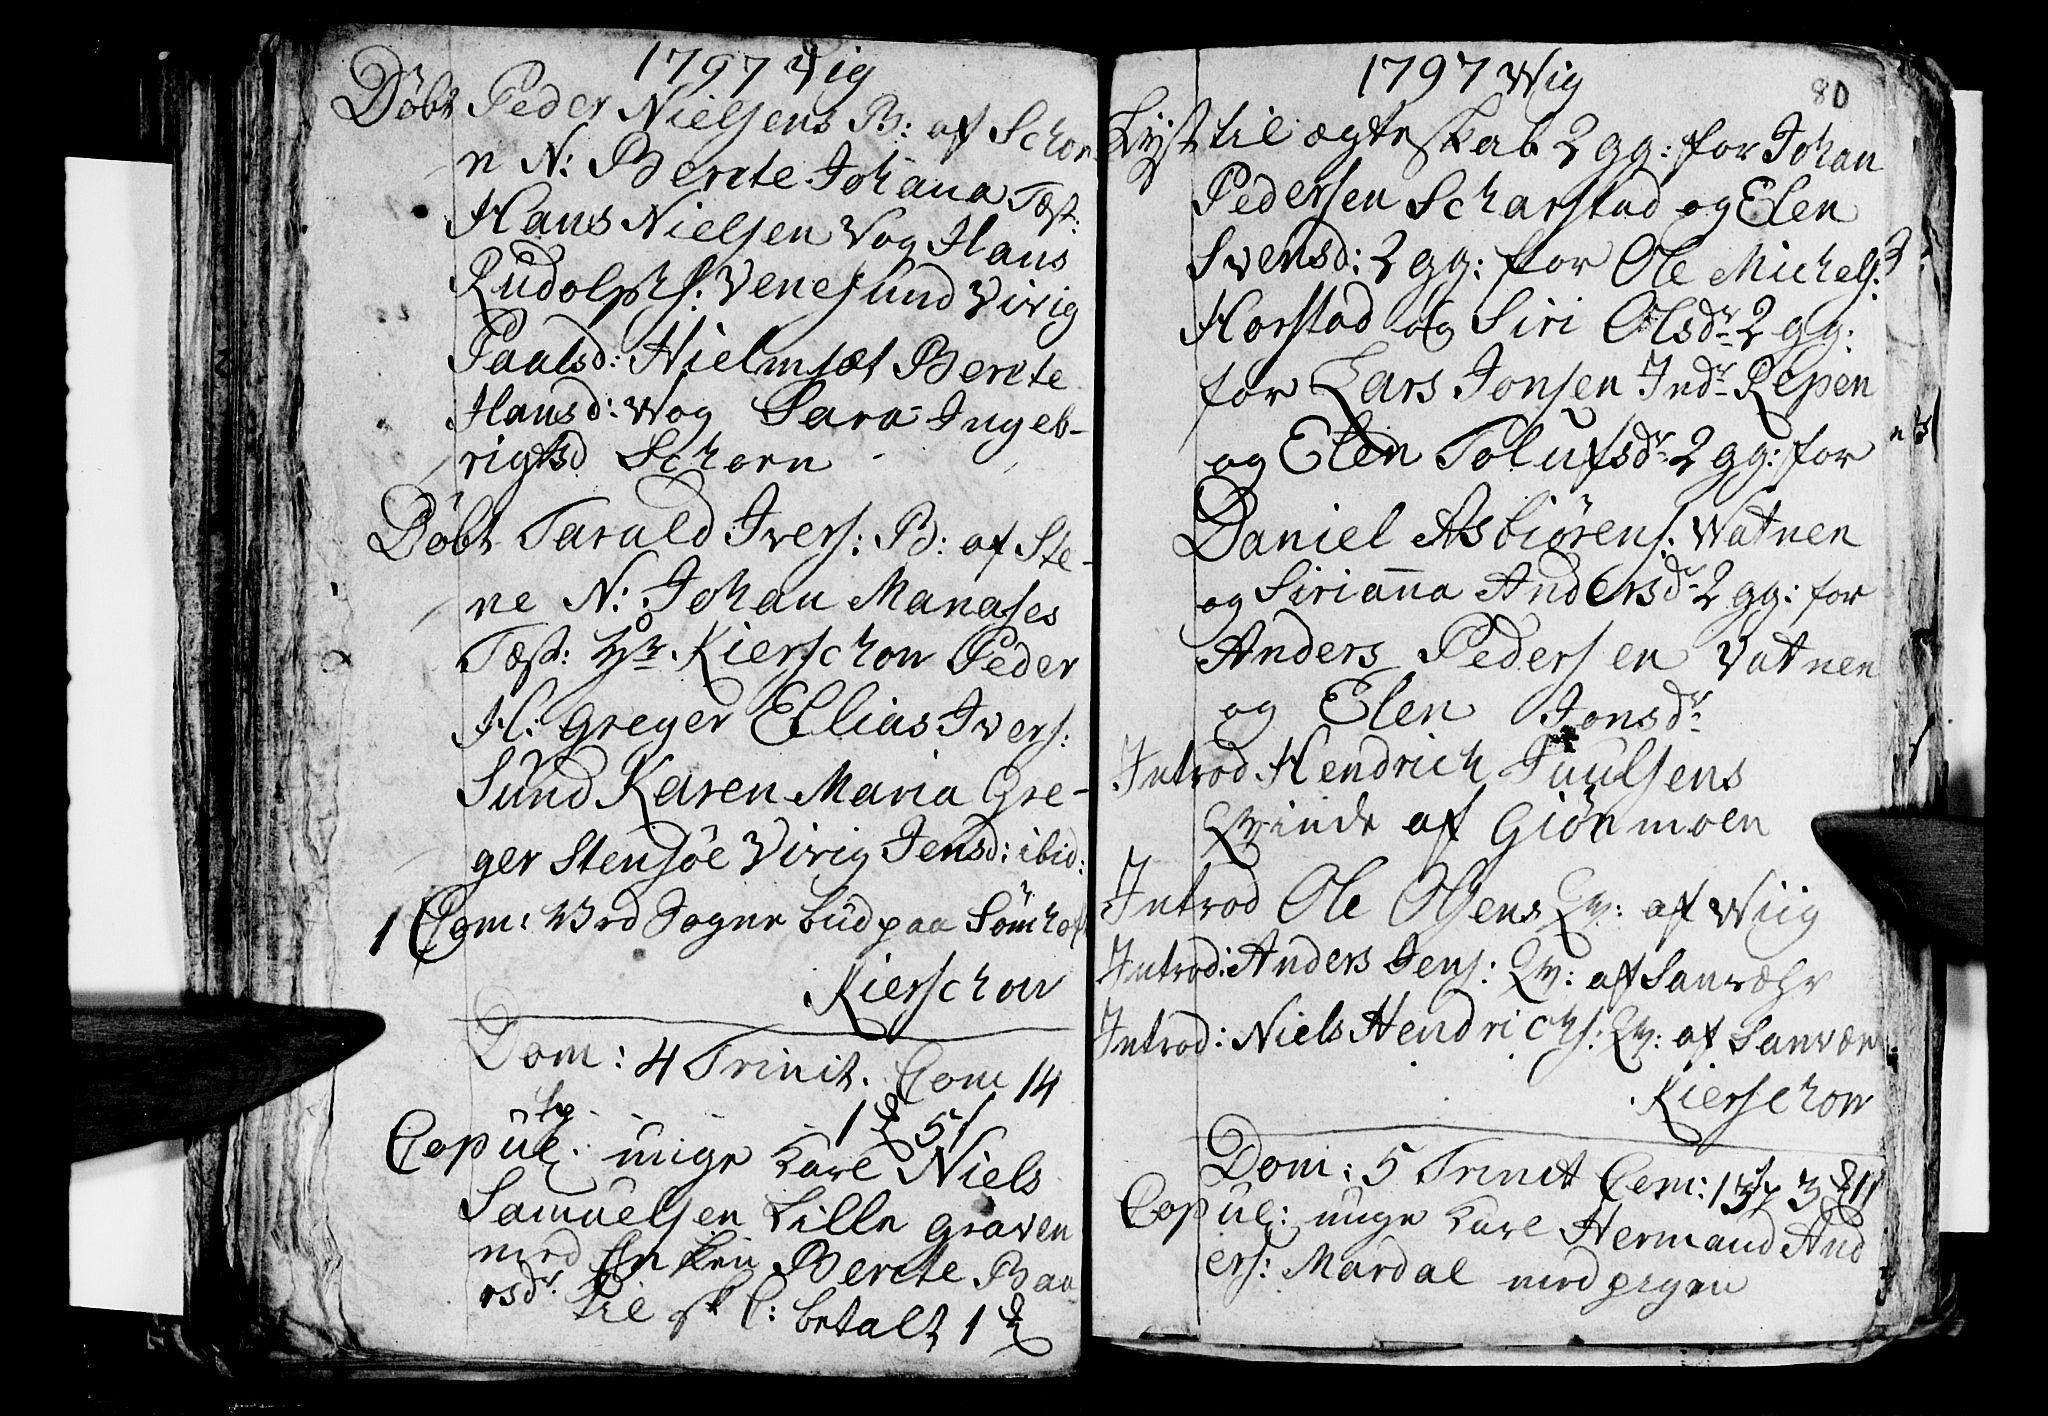 1797 Vig
Døbt Peder Nielsens B: af Schor-
n N: Berete Johana Test:
Hans Nielsen Vog Hans
Rudolphs: Venesund Virig
Paalsd: Hielmsæt Berete
Hansd: Wog Sara Ingeb-
rigtsd Schorn
Døbt Tarald Ivers: B: af Ste-
ne N: Johan Manases
Test: Hr Kierschow Peder
H: Greger Ellias Ivers:
Sund Karen Maria Gre-
ger Stensøe Virig Jensd: ibid:
1 Com: ved Sogne bud paa Sømhof
Kierschow
Dom: 4 Trinit. Com 14
Copul: unge Karl Niels
Samuelsen Lille graven
med Enken Berete Baa-
rsdr til betalt 1
1797 Wig
80
Lyst til ægteskab 2 gg: for Johan
Pedersen Scharstad og Elen
Svensd: 2 gg: for Ole Michels:
Horstad og Siri Olsdr 2 gg:
for Lars Jonsen Indr Repen
og Elen Tolufsdr 2 gg: for
Daniel Asbiørens: Watnen
og Sirianna Andersdr 2 gg: for
Anders Pedersen Vatnen
og Elen Jonsdr
Introd Hendrich Juulsens
Qvinde af Giønmoen
Introd Ole Olsens Qv: af Wiig
Introd: Anders Jens: Qv: af Sanvæhr
Introd: Niels Hendrichs: Qv: af Sanvær
Kierschow
Dom: 5 Trinit Com: 137
Copul: unge Karl Hermand And
ers: Mardal med pigen